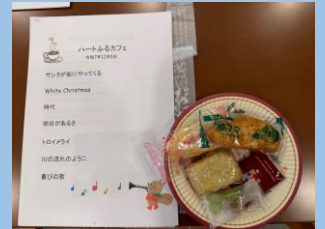 ハートふるカフェ
サンタが街にやってくる
White Christmas
時代
明日があるさ
トロイメライ
川の流れのように
喜びの歌